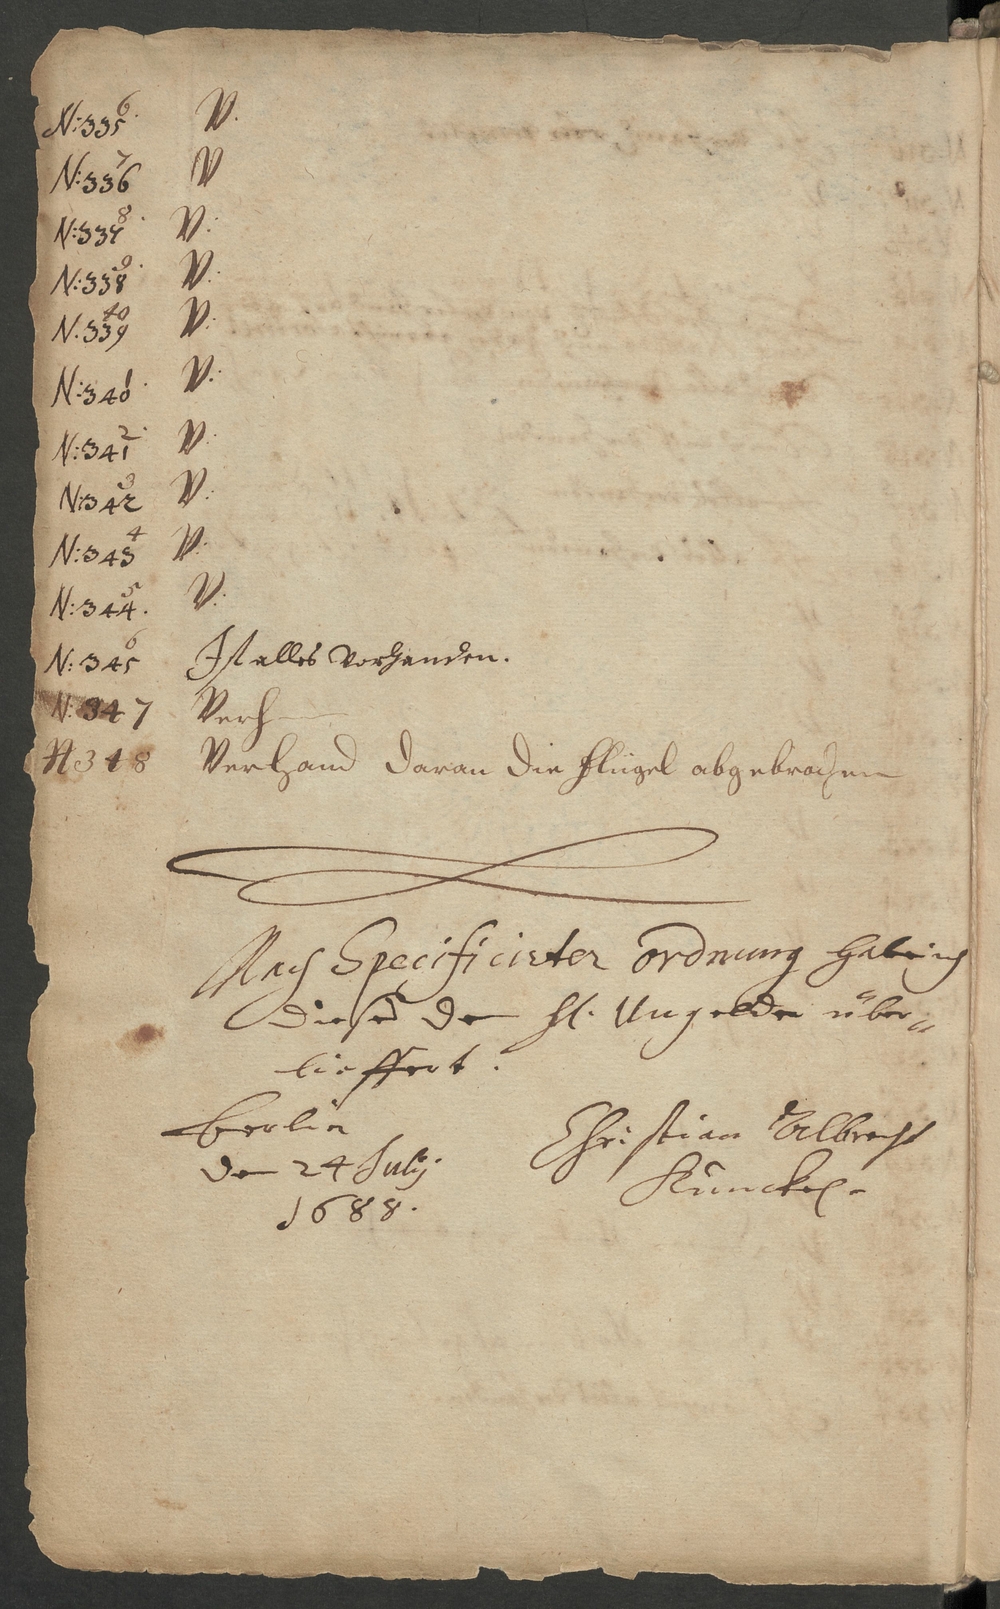 N: 335 6. V.
N: 336 7 V
N: 337 8. V.
N: 338 9. V.
N. 339 40 V.
N: 340 1. V.
N: 341 2. V.
N: 342 3 V.
N: 343 4 V.
N: 344. 5 V.
N: 345 6 Ist alles vorhanden.
N: 347 Verh
N 348 Verhand daran die flügel abgebrochen
Nach Specificirter ordnung habe ich
dieses dem H. Ungelder über-
lieffert.
Berlin
den 24 July.
1688.
Christian Albrecht
Kunckel.